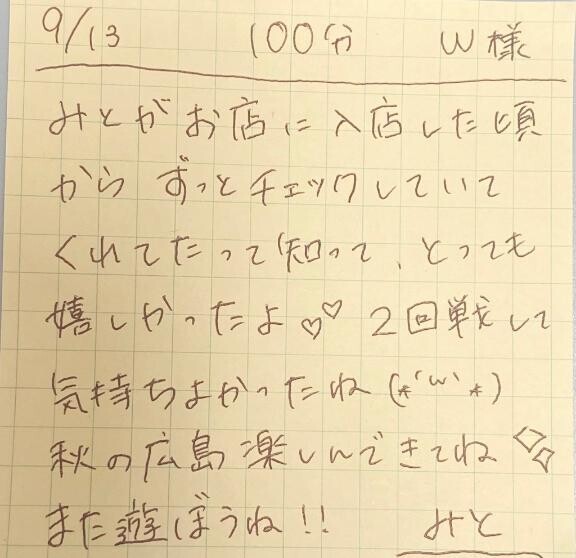 9/13 100分 W様
みとがお店に入店した頃
から ずっとチェックしていて
くれてたって知って、とっても
嬉しかったよ♡♡ 2回戦して
気持ちよかったね(*'ω'*)
秋の広島楽しんできてね
また遊ぼうね!! みと